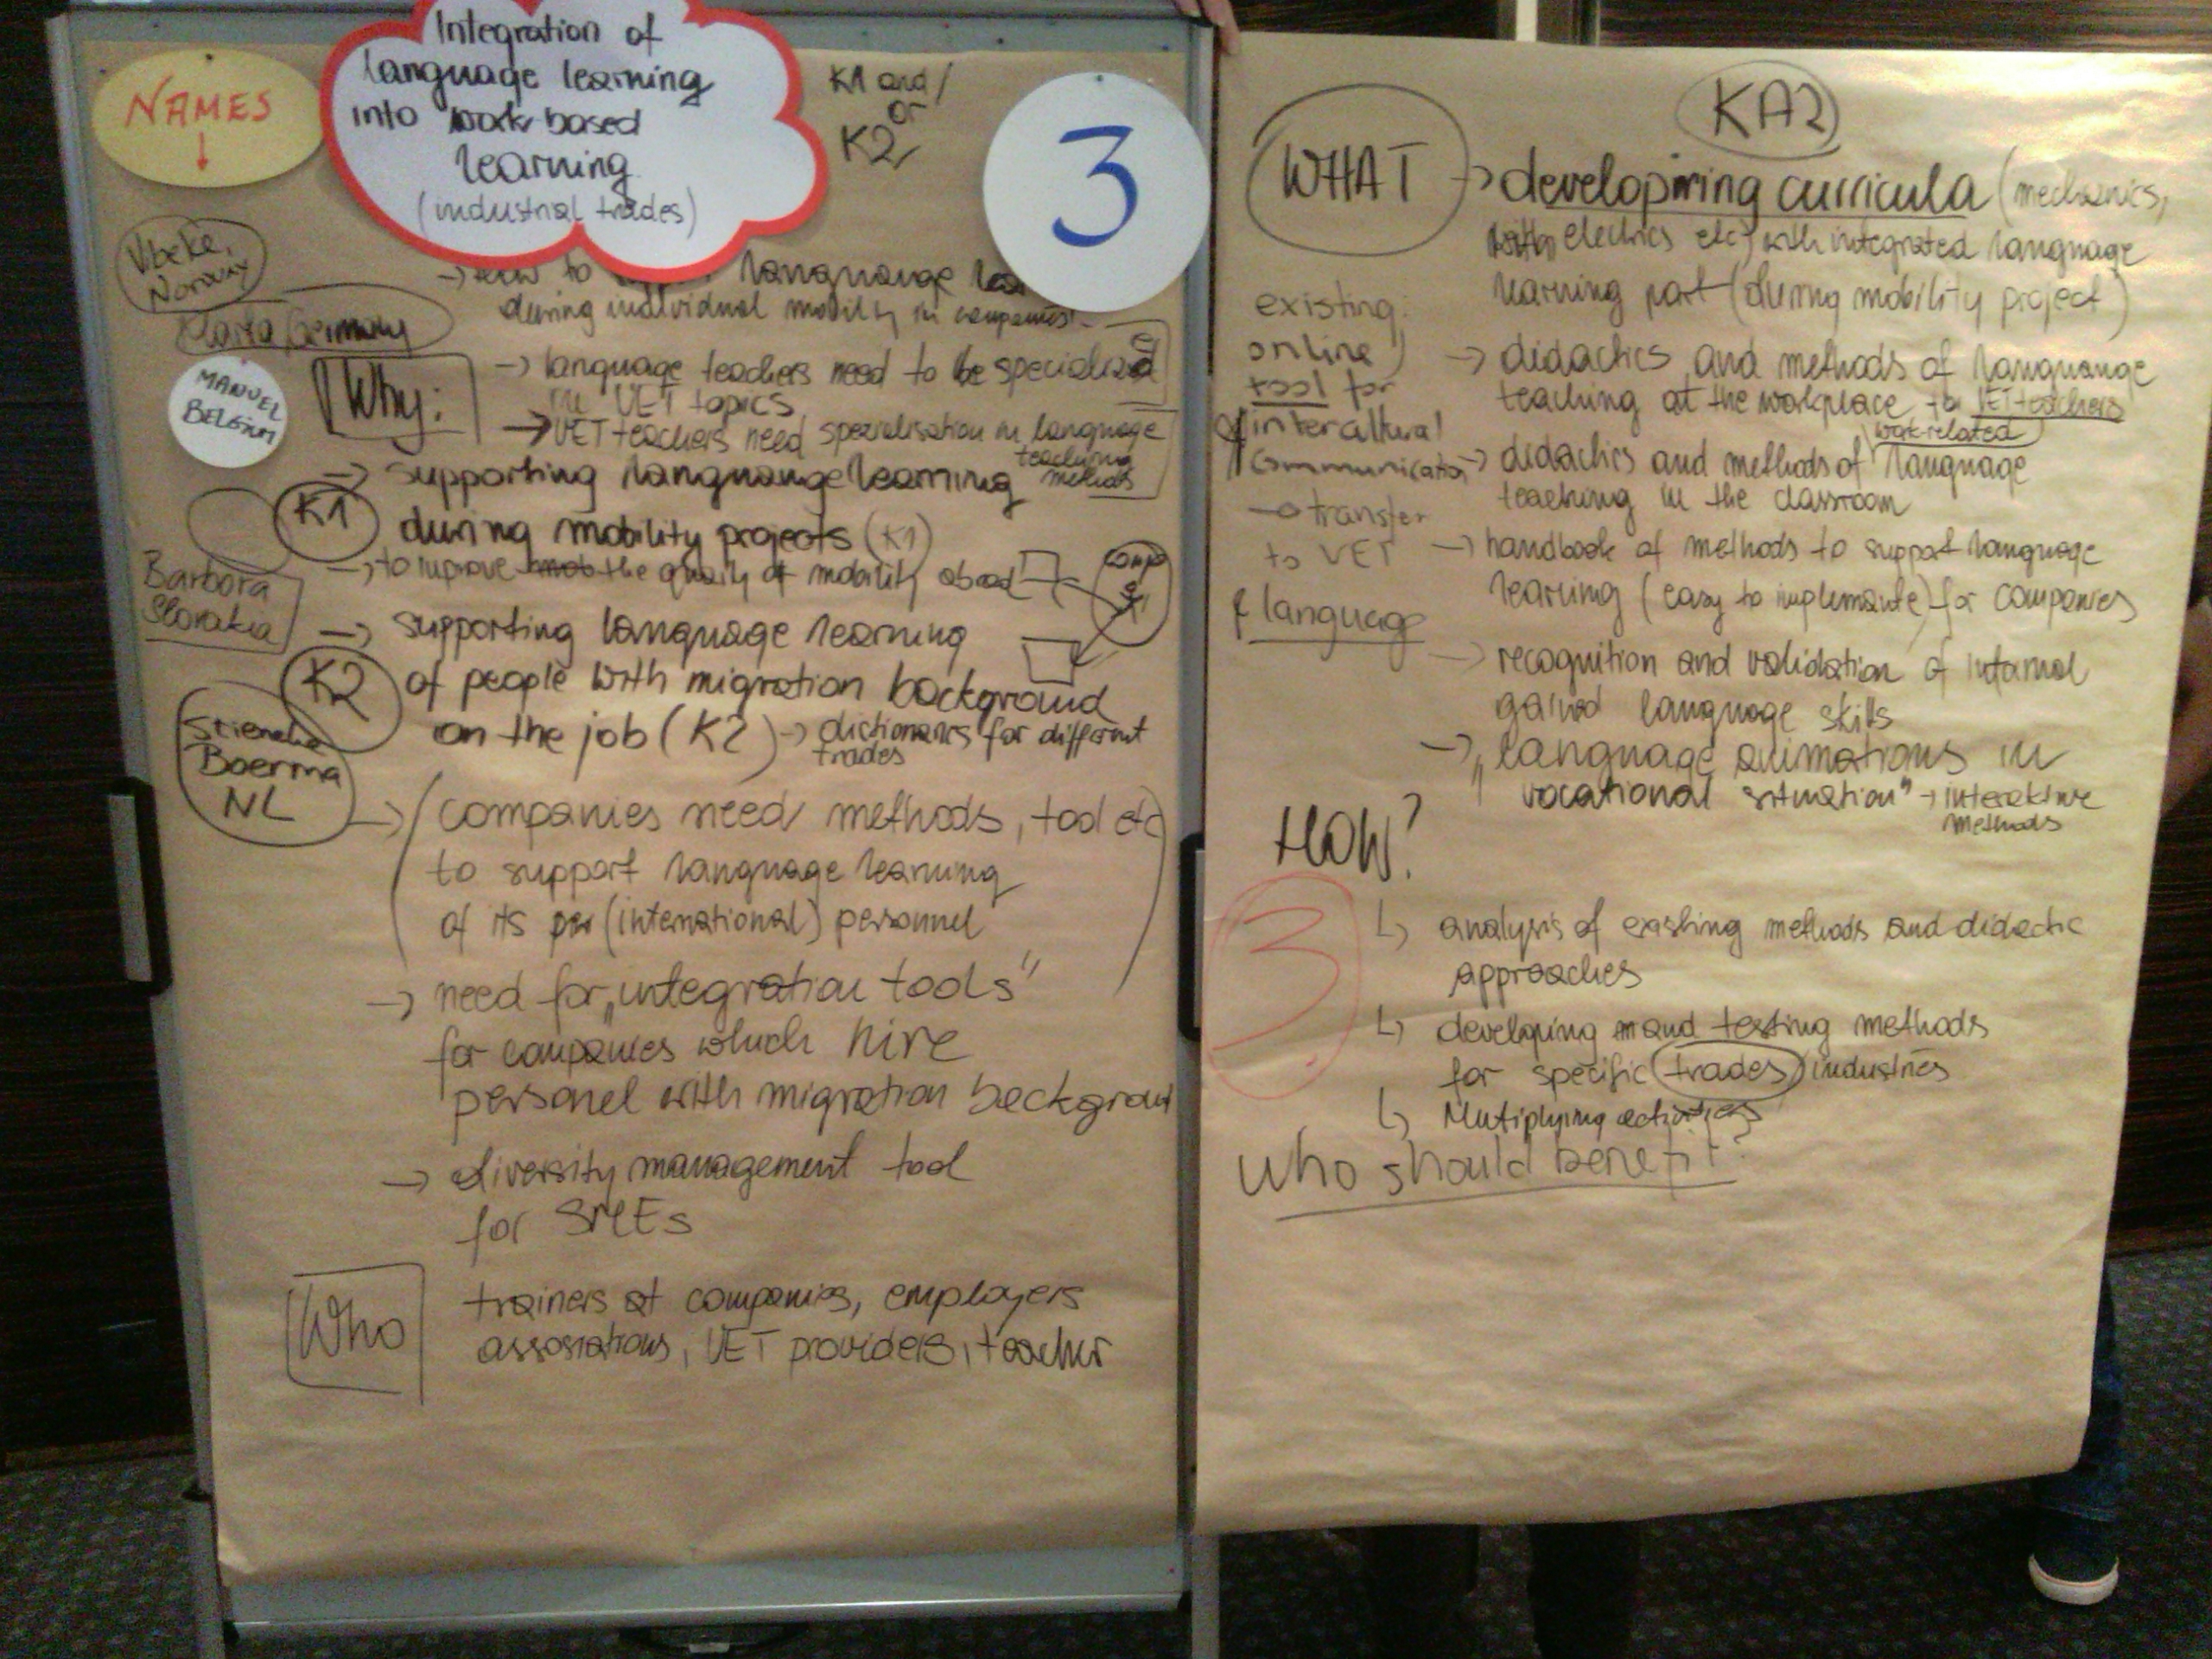 NAMES
↓
Integration of
language learning
into work based
learning
(industrial trades)
K1 and /
or
K2
3
Vibeke,
Norway
Germany
MANUEL
BELGIUM
Barbora
Slovakia
Boerma
NL
→ how to languange
during individual mobility in companies
Why:
→ language teachers need to be specialized
in VET topics
→ VET teachers need spezialisation in language
teaching
methods
K1
→ supporting languange learning
during mobility projects (K1)
→ to improve the quality of mobility abroad
K2
→ supporting language learning
of people with migration background
on the job (K2) → dictionaries for different
trades
→ (companies need methods, tool etc
to support language learning
of its (international) personnel
→ need for „integration tools"
for companies which hire
personel with migration backgroun
→ diversity management tool
for SMEs
Who
trainers at companies, employers
assosiations, VET providers, teacher
KA2
WHAT → developing curricula (mechanics,
electrics etc) with integrated language
learning part (during mobility project)
→ didactics and methods of languange
teaching at the workplace to VET teachers
work-related
→ didactics and methods of language
teaching in the classroom
→ handbook of methods to support language
learning (easy to implemante) for companies
→ recognition and validation of informal
gained language skills
→ „language animations in
vocational situation" → interaktive
methods
existing:
online
tool for
intercultural
communication
→ transfer
to VET
& language
HOW?
3.
↳ analysis of existing methods and didactic
approaches
↳ developing and testing methods
for specific trades industries
↳ Mutiplying activities
Who should benefit?